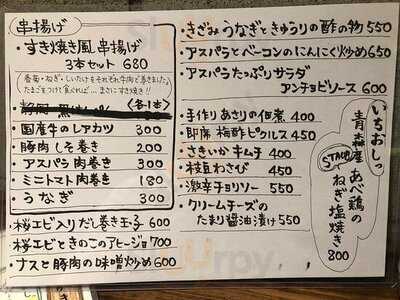 串揚げ
・すき焼き風 串揚げ
3本セット 680
春菊・ねぎ・しいたけをそれぞれ牛肉で巻きました♪
たまごをつけて食べれば…まさにすき焼き!!
(各1本)
・国産牛のレアカツ 300
・豚肉しそ巻き 200
・アスパラ肉巻き 300
・ミニトマト肉巻き 180
・うなぎ 300
桜エビ入りだし巻き玉子 600
桜エビときのこのアヒージョ 700
・ナスと豚肉の味噌炒め 600
・きざみうなぎときゅうりの酢の物 550
・アスパラとベーコンのにんにく炒め 650
・アスパラたっぷりサラダ
アンチョビソース 600
・手作りあさりの佃煮 400
・即席 梅酢ピクルス 450
・さきいかキムチ 400
・枝豆わさび 450
・激辛チョリソー 550
・クリームチーズの
たまり醤油漬け 550
いちおしっ
青森産 あべ鶏の
ねぎ塩焼き
800